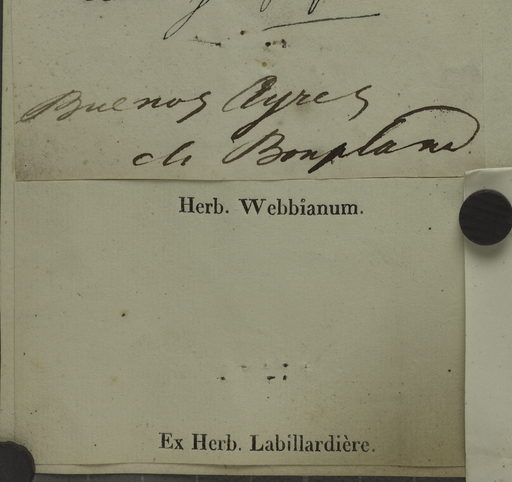 Buenos Ayres
de Bonpland
Herb. Webbianum.
Ex Herb. Labillardière.